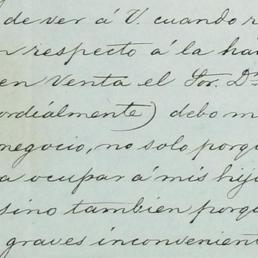 de ver á V. cuando r
n respecto á la ha
en venta el Sor. Dn
ordialmente) debo m
negocio, no solo porq
a ocupar á mis hijo
sino tambien porqu
graves inconvenient